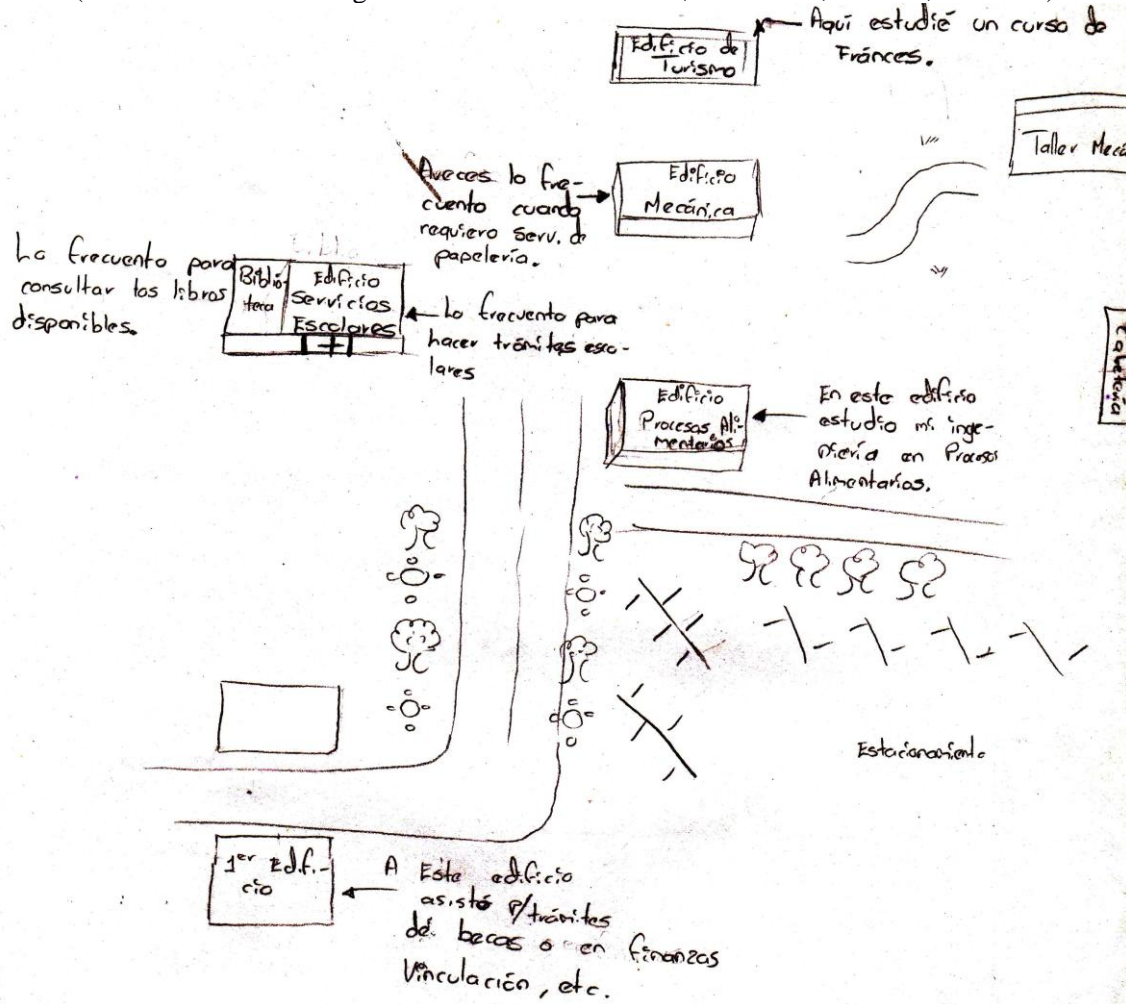 Aquí estudié un curso de
Fránces.
Edificio de
Turismo
Taller Mecá
Aveces lo fre-
cuento cuando
requiero serv. de
papelería.
Edificio
Mecánica
La frecuento para
consultar los libros
disponibles.
Biblio-
teca
Edificio
Servicios
Escolares
Lo frecuento para
hacer trámites esco-
lares
Cafetería
Edificio
Procesos Ali-
mentarios
En este edificio
estudio mi inge-
niería en Procesos
Alimentarios.
Estacionamiento
1er Edifi-
cio
A Este edificio
asistó p/trámites
de becas o en finanzas
Vinculación, etc.